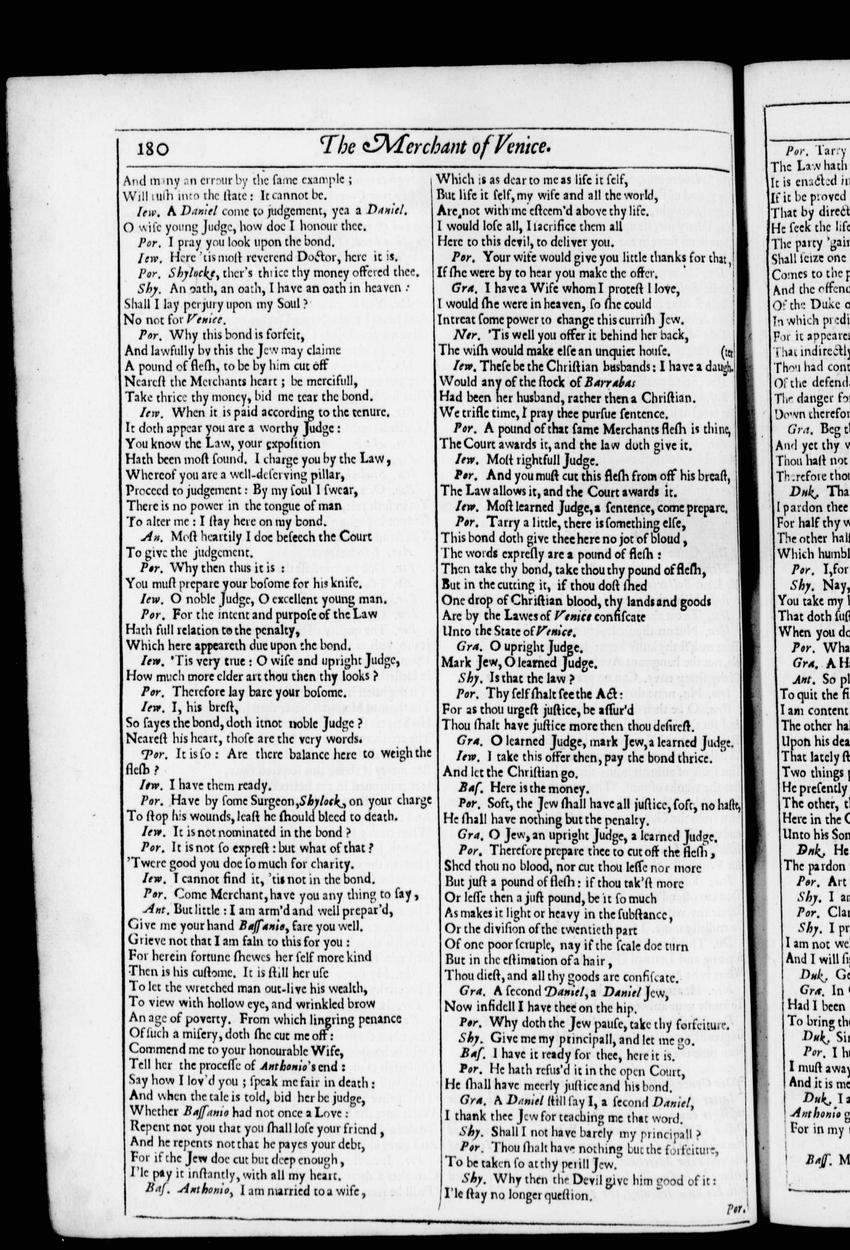 180
The Merchant of Venice.
And many an errour by the same example ;
Will rush into the state : It cannot be.
Iew. A Daniel come to judgement, yea a Daniel.
O wise young Judge, how doe I honour thee.
Por. I pray you look upon the bond.
Iew. Here 'tis most reverend Doctor, here it is.
Por. Shylocke, ther's thrice thy money offered thee.
Shy. An oath, an oath, I have an oath in heaven :
Shall I lay perjury upon my Soul ?
No not for Venice.
Por. Why this bond is forfeit,
And lawfully by this the Jew may claime
A pound of flesh, to be by him cut off
Nearest the Merchants heart ; be mercifull,
Take thrice thy money, bid me tear the bond.
Iew. When it is paid according to the tenure.
It doth appear you are a worthy Judge :
You know the Law, your exposition
Hath been most sound. I charge you by the Law,
Whereof you are a well-deserving pillar,
Proceed to judgement : By my soul I swear,
There is no power in the tongue of man
To alter me : I stay here on my bond.
An. Most heartily I doe beseech the Court
To give the judgement.
Por. Why then thus it is :
You must prepare your bosome for his knife.
Iew. O noble Judge, O excellent young man.
Por. For the intent and purpose of the Law
Hath full relation to the penalty,
Which here appeareth due upon the bond.
Iew. 'Tis very true : O wise and upright Judge,
How much more elder art thou then thy looks ?
Por. Therefore lay bare your bosome.
Iew. I, his brest,
So sayes the bond, doth it not noble Judge ?
Nearest his heart, those are the very words.
Por. It is so : Are there balance here to weigh the
flesh ?
Iew. I have them ready.
Por. Have by some Surgeon, Shylock, on your charge
To stop his wounds, least he should bleed to death.
Iew. It is not nominated in the bond ?
Por. It is not so exprest : but what of that ?
'Twere good you doe so much for charity.
Iew. I cannot find it, 'tis not in the bond.
Por. Come Merchant, have you any thing to say,
Ant. But little : I am arm'd and well prepar'd,
Give me your hand Bassanio, fare you well.
Grieve not that I am faln to this for you :
For herein fortune shewes her self more kind
Then is his custome. It is still her use
To let the wretched man out-live his wealth,
To view with hollow eye, and wrinkled brow
An age of poverty. From which lingring penance
Of such a misery, doth she cut me off :
Commend me to your honourable Wife,
Tell her the processe of Anthonio's end :
Say how I lov'd you ; speak me fair in death :
And when the tale is told, bid her be judge,
Whether Bassanio had not once a Love :
Repent not you that you shall lose your friend,
And he repents not that he payes your debt,
For if the Jew doe cut but deep enough,
I'le pay it instantly, with all my heart.
Bas. Anthonio, I am married to a wife,
Which is as dear to me as life it self,
But life it self, my wife and all the world,
Are not with me esteem'd above thy life.
I would lose all, I sacrifice them all
Here to this devil, to deliver you.
Por. Your wife would give you little thanks for that,
If she were by to hear you make the offer.
Gra. I have a Wife whom I protest I love,
I would she were in heaven, so she could
Intreat some power to change this currish Jew.
Ner. 'Tis well you offer it behind her back,
The wish would make else an unquiet house. (ter
Iew. These be the Christian husbands : I have a daugh-
Would any of the stock of Barrabas
Had been her husband, rather then a Christian.
We trifle time, I pray thee pursue sentence.
Por. A pound of that same Merchants flesh is thine,
The Court awards it, and the law doth give it.
Iew. Most rightfull Judge.
Por. And you must cut this flesh from off his breast,
The Law allows it, and the Court awards it.
Iew. Most learned Judge, a sentence, come prepare.
Por. Tarry a little, there is something else,
This bond doth give thee here no jot of bloud,
The words expresly are a pound of flesh :
Then take thy bond, take thou thy pound of flesh,
But in the cutting it, if thou dost shed
One drop of Christian blood, thy lands and goods
Are by the Lawes of Venice confiscate
Unto the State of Venice.
Gra. O upright Judge.
Mark Jew, O learned Judge.
Shy. Is that the law ?
Por. Thy self shalt see the Act :
For as thou urgest justice, be assur'd
Thou shalt have justice more then thou desirest.
Gra. O learned Judge, mark Jew, a learned Judge.
Iew. I take this offer then, pay the bond thrice.
And let the Christian go.
Bas. Here is the money.
Por. Soft, the Jew shall have all justice, soft, no haste,
He shall have nothing but the penalty.
Gra. O Jew, an upright Judge, a learned Judge.
Por. Therefore prepare thee to cut off the flesh,
Shed thou no blood, nor cut thou lesse nor more
But just a pound of flesh : if thou tak'st more
Or lesse then a just pound, be it so much
As makes it light or heavy in the substance,
Or the division of the twentieth part
Of one poor scruple, nay if the scale doe turn
But in the estimation of a hair,
Thou diest, and all thy goods are confiscate.
Gra. A second Daniel, a Daniel Jew,
Now infidell I have thee on the hip.
Por. Why doth the Jew pause, take thy forfeiture.
Shy. Give me my principall, and let me go.
Bas. I have it ready for thee, here it is.
Por. He hath refus'd it in the open Court,
He shall have meerly justice and his bond.
Gra. A Daniel still say I, a second Daniel,
I thank thee Jew for teaching me that word.
Shy. Shall I not have barely my principall ?
Por. Thou shalt have nothing but the forfeiture,
To be taken so at thy perill Jew.
Shy. Why then the Devil give him good of it :
I'le stay no longer question.
Por.
Por. Tarry
The Law hath
It is enacted
If it be proved
That by direct
He seek the life
The party 'gain
Shall seize one
Comes to the p
And the offend
Of the Duke o
In which predi
For it appeares
That indirectly
Thou had cont
Of the defend
The danger for
Down therefor
Gra. Beg t
And yet thy w
Thou hast not
Therefore thou
Duk. Tha
I pardon thee
For half thy w
The other hal
Which humbl
Por. I, for
Shy. Nay,
You take my
That doth sus
When you do
Por. Wha
Gra. A H
Ant. So pl
To quit the fi
I am content
The other hal
Upon his dea
That lately st
Two things p
He presently
The other, t
Here in the C
Unto his Son
Duk. He
The pardon
Por. Art
Shy. I am
Por. Clar
Shy. I pr
I am not we
And I will si
Duk. Ge
Gra. In
Had I been
To bring the
Duk. Sir
Por. I h
I must away
And it is me
Duk. I a
Anthonio g
For in my
Bass. M